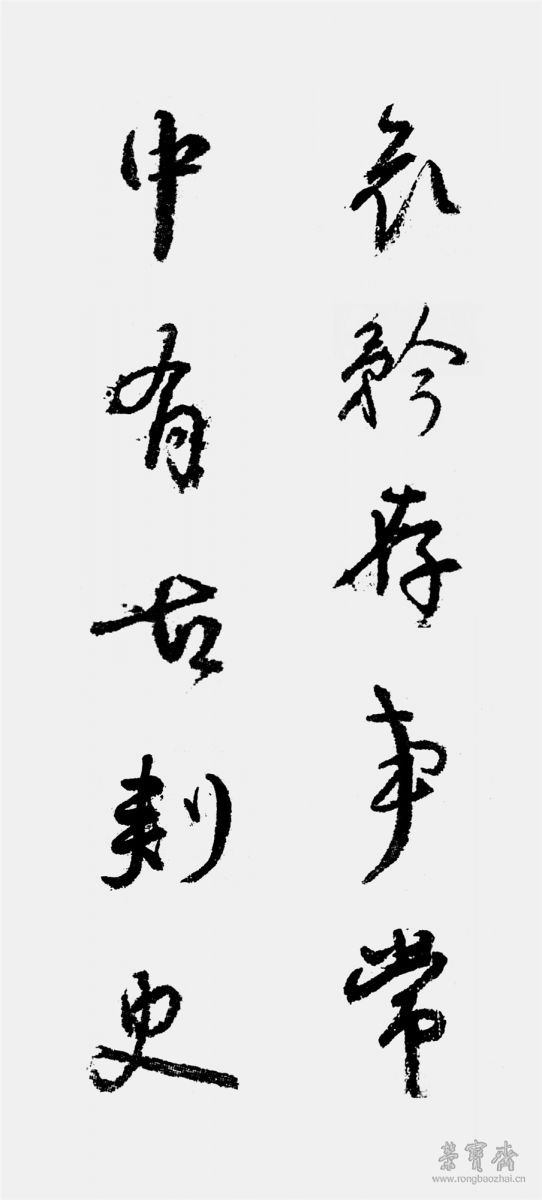 哀矜存事常
中有古刺史
榮寶齋
www.rongbaozhai.cn